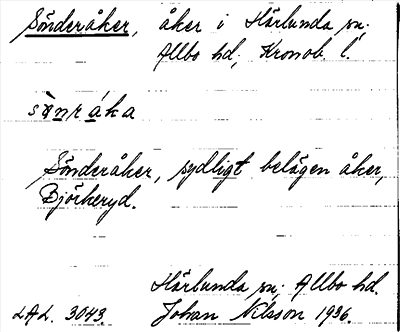 Sönderåker, åker i Härlunda sn;
Allbo hd; Kronob. l.
sö̀nråka
Sönderåker, sydligt belägen åker,
Björkeryd.
Härlunda sn; Allbo hd.
LAL. 3043 Johan Nilsson 1936.